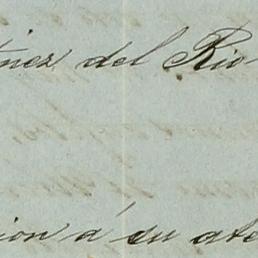 tinez del Rio
cion á su ate